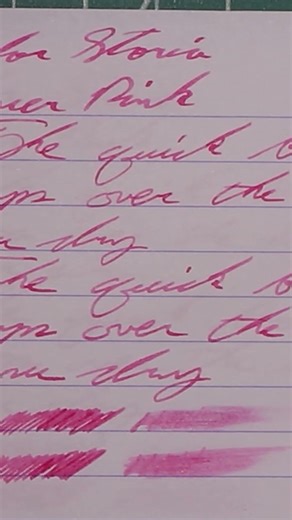 lor Storia
cer Pink
The quick
mps over the
dog
The quick
mps over the
dog